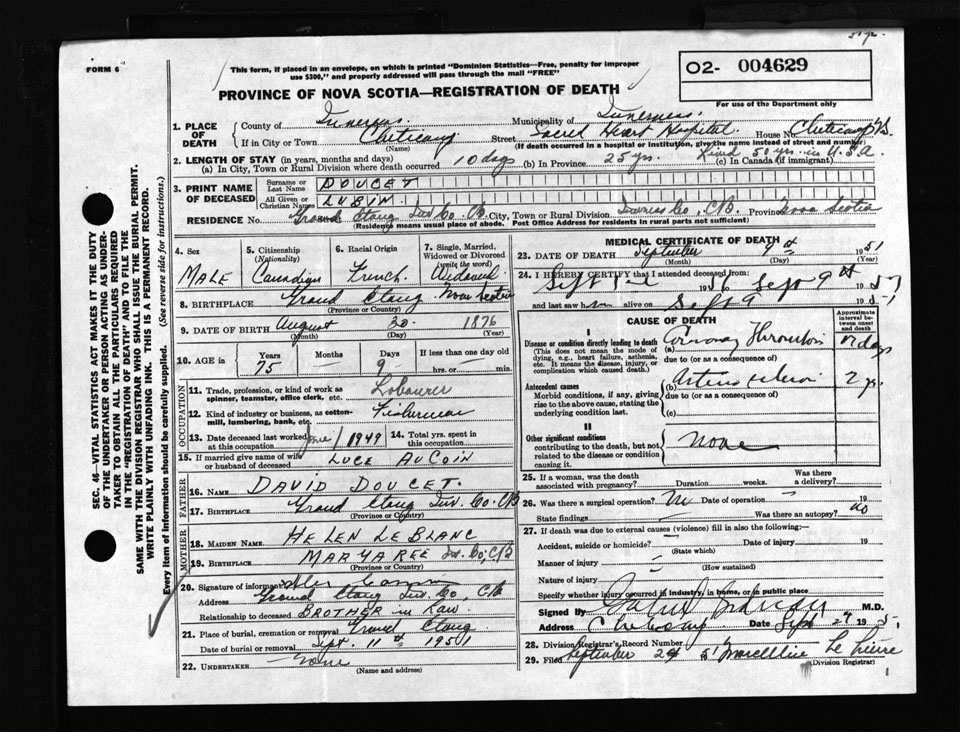 FORM 6
This form, if placed in an envelope, on which is printed "Dominion Statistics—Free, penalty for improper
use $300," and properly addressed will pass through the mail "FREE"
O2- 004629
PROVINCE OF NOVA SCOTIA—REGISTRATION OF DEATH
For use of the Department only
1. PLACE OF DEATH
County of Inverness Municipality of Inverness
If in City or Town Cheticamp Street Sacred Heart Hospital House No. Cheticamp
(Name) (If death occurred in a hospital or institution, give the name instead of street and number)
2. LENGTH OF STAY (in years, months and days) Lived 50 yrs. in U.S.A.
(a) In City, Town or Rural Division where death occurred 10 days (b) In Province 25 yrs. (c) In Canada (if immigrant)
3. PRINT NAME OF DECEASED
Surname or Last Name DOUCET
All Given or Christian Names LUBIN
RESIDENCE No. Grand Etang Inv. Co. C.B. City, Town or Rural Division Inverness Co, C.B. Province Nova Scotia
Residence means usual place of abode. Post Office Address for Residences in rural parts not sufficient)
4. Sex
MALE
5. Citizenship (Nationality)
Canadian
6. Racial Origin
French
7. Single, Married, Widowed or Divorced (write the word)
Widowed
8. BIRTHPLACE Grand Etang Nova Scotia
(Province or Country)
9. DATE OF BIRTH August 30 1876
(Month) (Day) (Year)
10. AGE in
Years Months Days If less than one day old
75 9 hrs. or min.
OCCUPATION
11. Trade, profession, or kind of work as spinner, teamster, office clerk, etc. Labourer
12. Kind of industry or business, as cotton-mill, lumbering, bank, etc. Fisherman
13. Date deceased last worked at this occupation June 1 1949
14. Total yrs. spent in this occupation
15. If married give name of wife or husband of deceased LUCE AUCOIN
FATHER
16. NAME DAVID DOUCET.
17. BIRTHPLACE Grand Etang Inv. Co. C.B
(Province or Country)
MOTHER
18. MAIDEN NAME HELEN LE BLANC
19. BIRTHPLACE MARGAREE Inv. Co, C/B
(Province or Country)
20. Signature of informant
Address Grand Etang Inv. Co, C.B
Relationship to deceased BROTHER in Law
21. Place of burial, cremation or removal Grand Etang
Date of burial or removal Sept. 11th 1951
22. UNDERTAKER None
(Name and address)
MEDICAL CERTIFICATE OF DEATH
23. DATE OF DEATH September 9th 1951
(Month) (Day) (Year)
24. I HEREBY CERTIFY that I attended deceased from
Sept 1st 1951 to Sept 9th 1951
and last saw him alive on Sept 9 1951
CAUSE OF DEATH
Approximate interval between onset and death
I
Disease or condition directly leading to death
(This does not mean the mode of dying, e.g., heart failure, asthenia, etc. It means the disease, injury, or complication which caused death.)
(a) Coronary Thrombosis days
due to (or as a consequence of)
Antecedent causes
Morbid conditions, if any, giving rise to the above cause, stating the underlying condition last.
(b) Arteriosclerosis 2 yrs.
due to (or as a consequence of)
(c)
II
Other significant conditions
contributing to the death, but not related to the disease or condition causing it.
None
25. If a woman, was the death associated with pregnancy? Duration weeks. Was there a delivery?
26. Was there a surgical operation? No Date of operation 19
State findings Was there an autopsy? no
27. If death was due to external causes (violence) fill in also the following:
Accident, suicide or homicide? Date of injury 19
(State which)
Manner of injury
(How sustained)
Nature of injury
Specify whether injury occurred in industry, in home, or in public place
Signed by M.D.
Address Cheticamp Date Sept 24 1951
28. Division Registrar's Record Number
29. Filed September 24 51
(Division Registrar)
SEC. 46—VITAL STATISTICS ACT MAKES IT THE DUTY
OF THE UNDERTAKER OR PERSON ACTING AS UNDER-
TAKER TO OBTAIN ALL THE PARTICULARS REQUIRED
IN THE "REGISTRATION OF DEATH" AND TO FILE THE
SAME WITH THE DIVISION REGISTRAR WHO SHALL ISSUE THE BURIAL PERMIT.
WRITE PLAINLY WITH UNFADING INK. THIS IS A PERMANENT RECORD.
Every item of information should be carefully supplied. (See reverse side for instructions.)